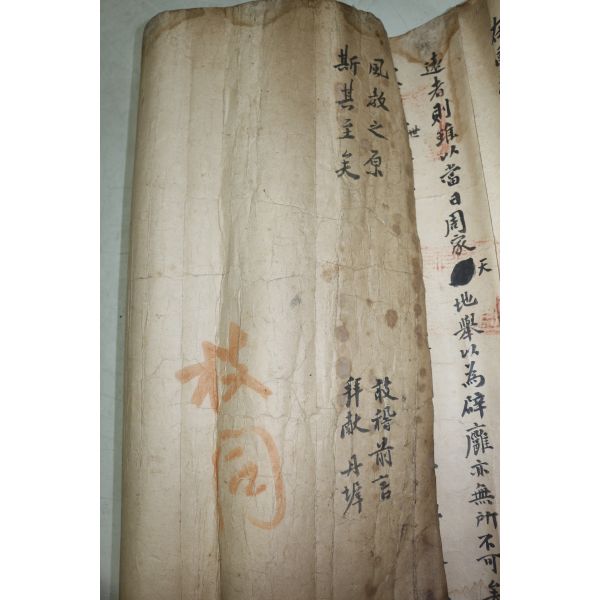 遠者則雖以當日周家天地舉以為辟廱亦無所不可矣
世
風教之原
斯其至矣
敢稽前言
拜獻丹墀
枝同